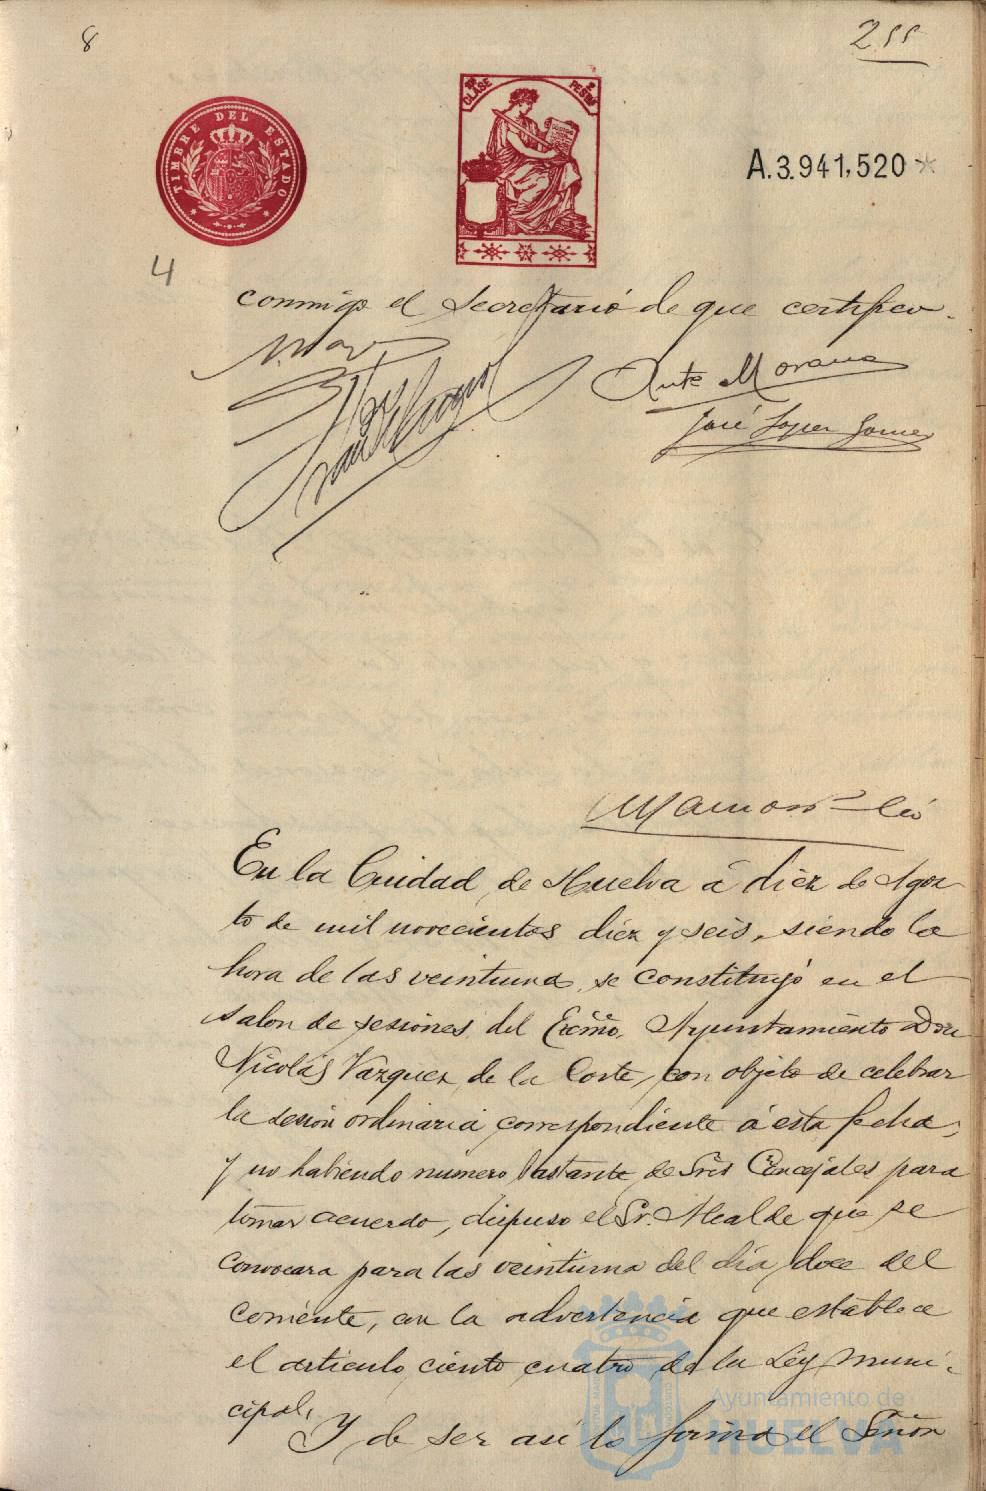 8
255
TIMBRE DEL ESTADO
9ª CLASE
2 PESETAS
A.3.941,520
4
conmigo el Secretario de que certifico.
Ante Morano
José Lopez Gomez
En la Ciudad de Huelva á diez de Agos-
to de mil novecientos diez y seis, siendo la
hora de las veintiuna, se constituyó en el
salon de sesiones del Excmo. Ayuntamiento Don
Nicolás Vazquez de la Corte, con objeto de celebrar
la sesión ordinaria correspondiente á esta fecha;
y no habiendo numero bastante de Sres Concejales para
tomar acuerdo, dispuso el Sr. Alcalde que se
convocara para las veintiuna del día doce del
corriente, con la advertencia que establece
el articulo ciento cuatro de la Ley Muni-
cipal.
Y de ser así lo firma el Señor
Ayuntamiento de
HUELVA